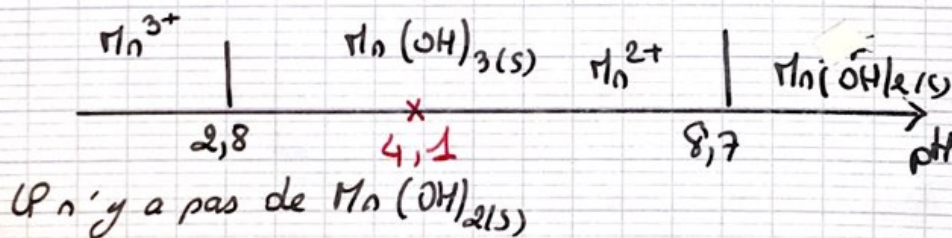 Mn³⁺ Mn(OH)₃(s) Mn²⁺ Mn(OH)₂(s)
2,8 4,1 8,7 pH
Il n'y a pas de Mn(OH)₂(s)